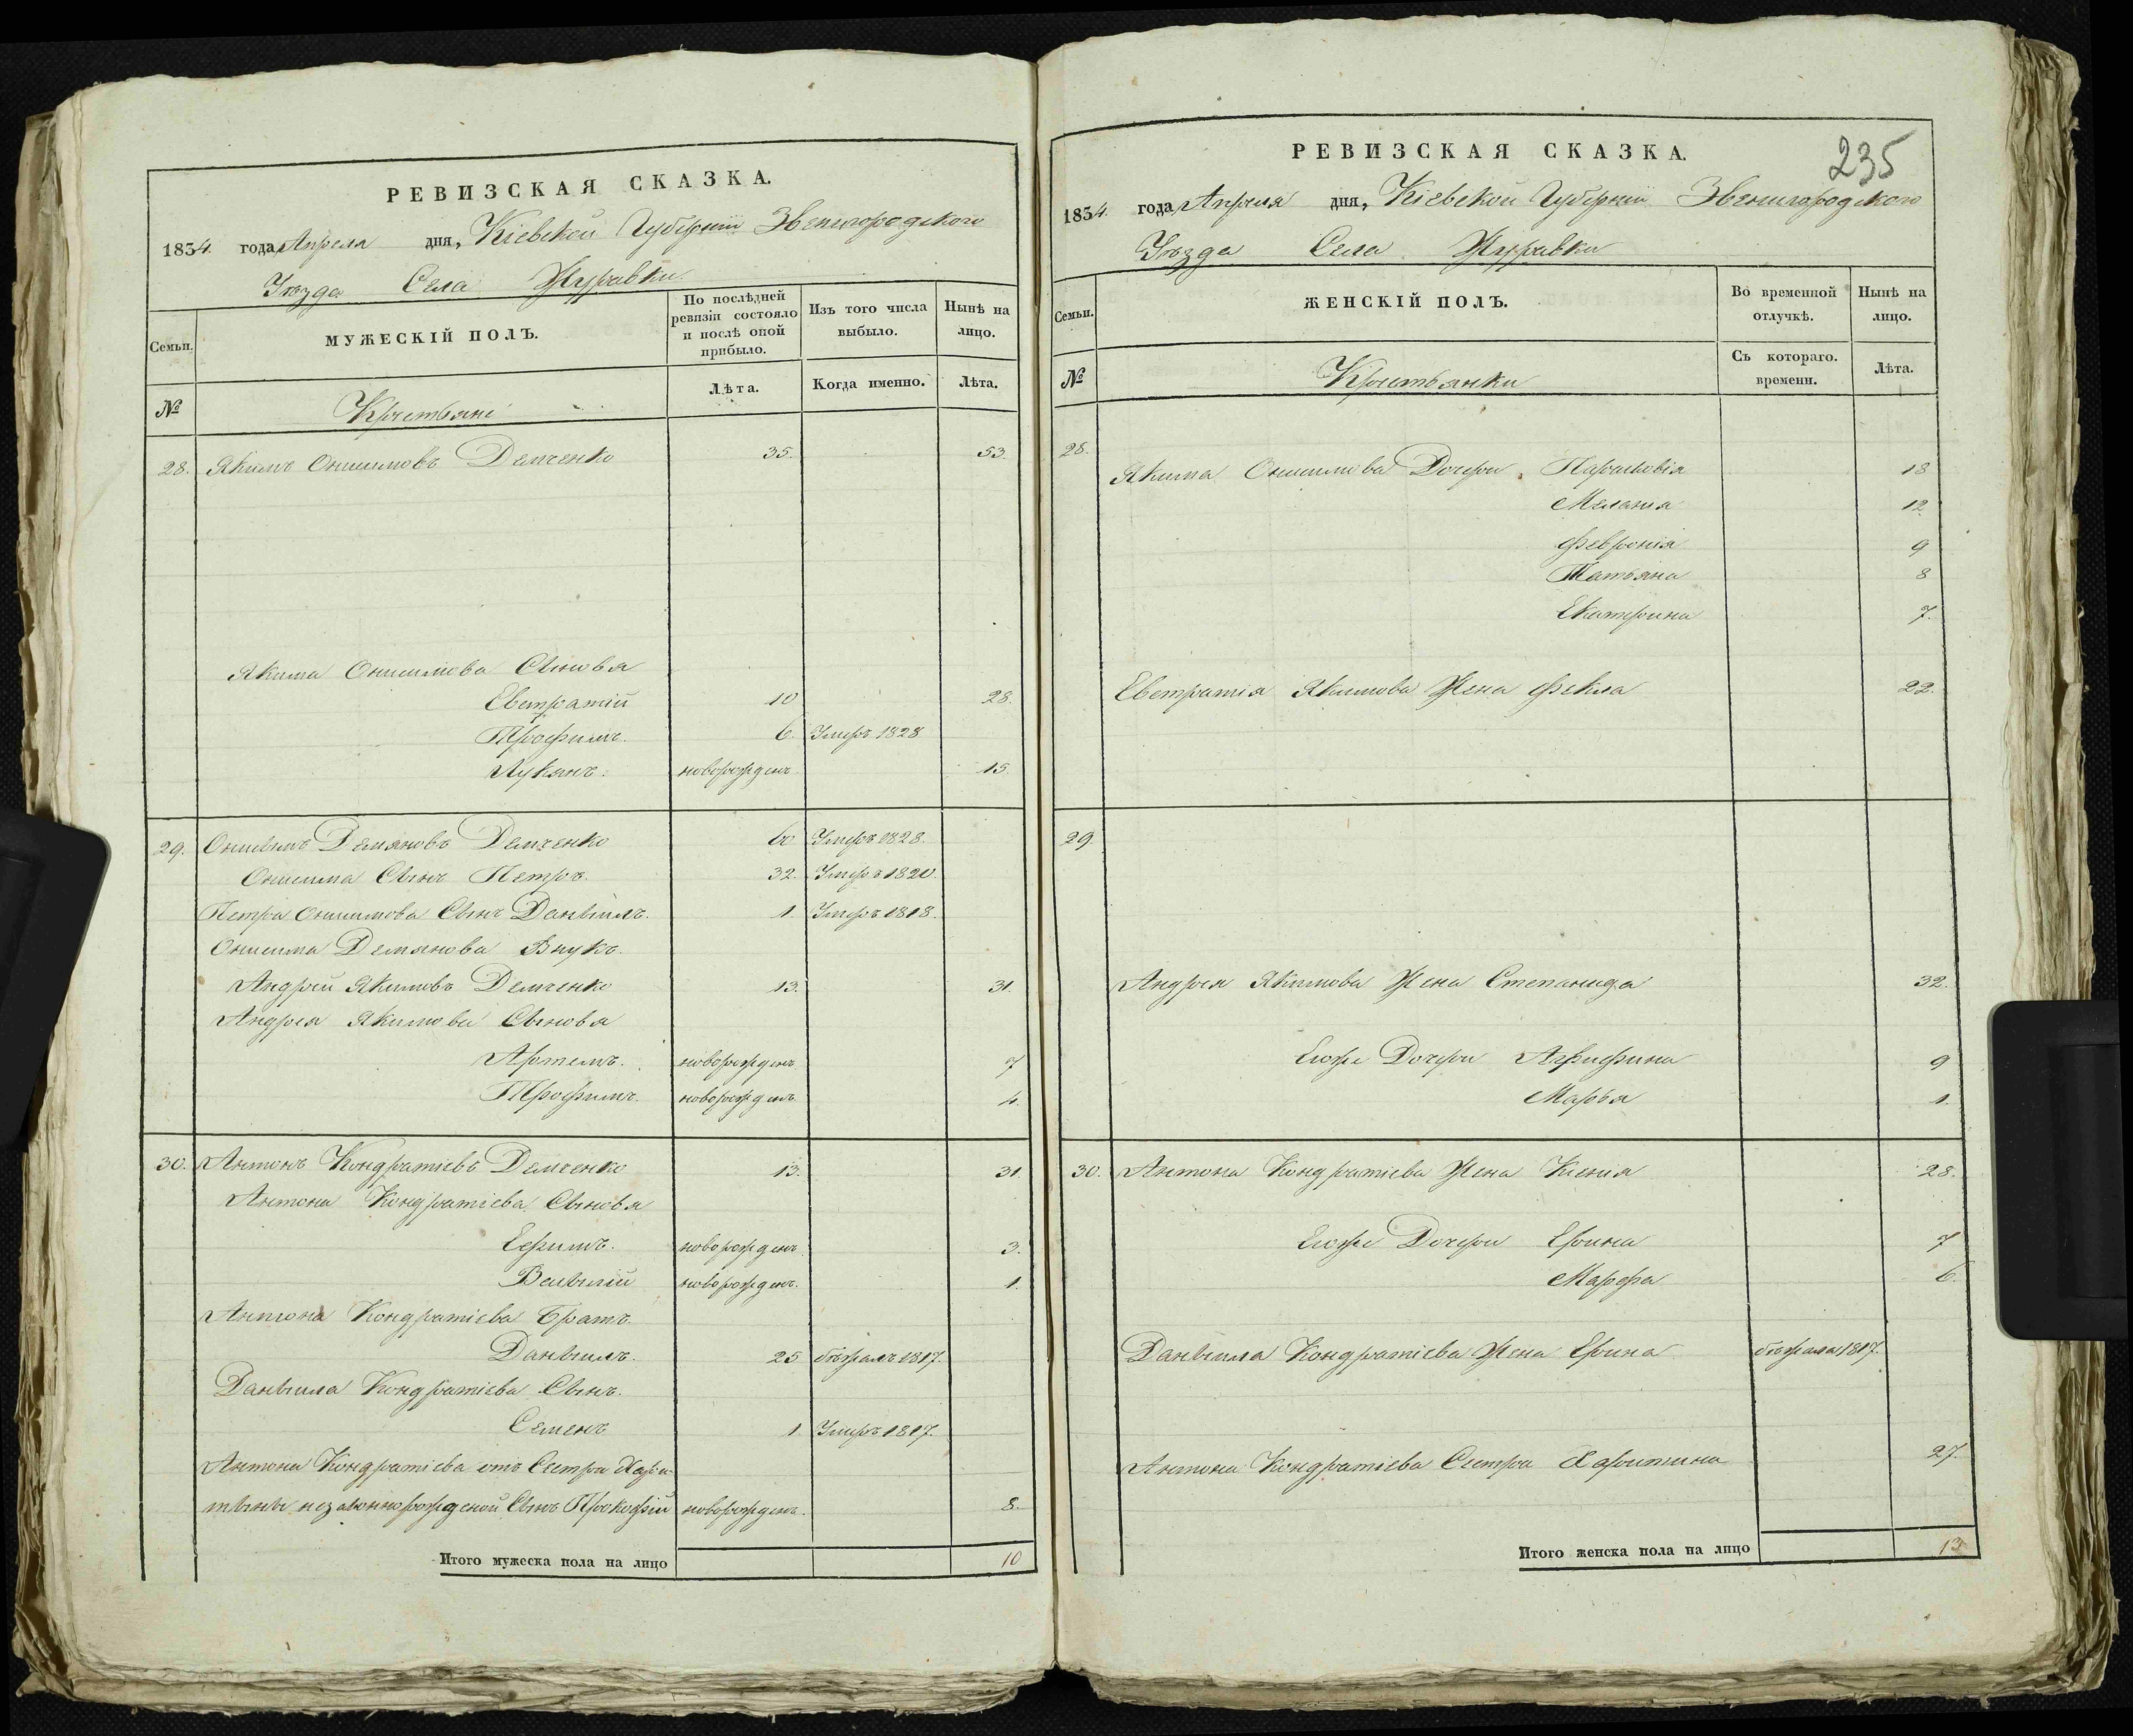 РЕВИЗСКАЯ СКАЗКА.
1834. года Апреля дня, Кіевской Губерніи Звенигородского
Уѣзда Села Журавки
Семьи.
МУЖЕСКІЙ ПОЛЪ.
По послѣдней ревизіи состояло и послѣ оной прибыло.
Изъ того числа выбыло.
Нынѣ на лицо.
№
Крестьяне
Лѣта.
Когда именно.
Лѣта.
28. Якимъ Онисимовъ Демченко 35. 53.
Якима Онисимова Сыновья
Евстратій 10 28.
Трофимъ. 6. Умеръ 1828
Лукянъ. новорожденъ 15.
29. Онисимъ Демяновъ Демченко 60 Умеръ 1828.
Онисима Сынъ Петръ. 32. Умеръ 1820.
Петра Онисимова Сынъ Даніилъ. 1 Умеръ 1818.
Онисима Демянова Внукъ.
Андрей Якимовъ Демченко 13. 31.
Андрея Якимова Сыновья
Артемъ. новорожденъ 7
Трофимъ. новорожденъ 4.
30. Антонъ Кондратіевъ Демченко 13. 31.
Антона Кондратіева Сыновья
Ефимъ. новорожденъ 3.
Василій новорожденъ. 1.
Антона Кондратіева Братъ.
Даніилъ. 25 бѣжалъ 1817.
Даніила Кондратіева Сынъ.
Семенъ 1 Умеръ 1817.
Антона Кондратіева отъ Сестры Хари-
тыны незаконнорожденой Сынъ Прокофій новорожденъ. 8.
Итого мужеска пола на лицо 10
235
РЕВИЗСКАЯ СКАЗКА.
1834. года Апреля дня, Кіевской Губерніи Звенигородского
Уѣзда Села Журавки
Семьи.
ЖЕНСКІЙ ПОЛЪ.
Во временной отлучкѣ.
Нынѣ на лицо.
№
Крестьянки
Съ котораго. времени.
Лѣта.
28.
Якима Онисимова Дочери Парасковія 18
Меланія 12
Февронія 9
Татьяна 8
Екатерина 7.
Евстратія Якимова Жена Фекла 22.
29.
Андрея Якимова Жена Степанида 32.
Егоже Дочери 9
Марья 1.
30. Антона Кондратіева Жена Ксенія 28.
Егоже Дочери Ерина 7
Марфа 6.
Даніила Кондратіева Жена Ерина бѣжала 1817.
Антона Кондратіева Сестра Харитина 27.
Итого женска пола на лицо 13